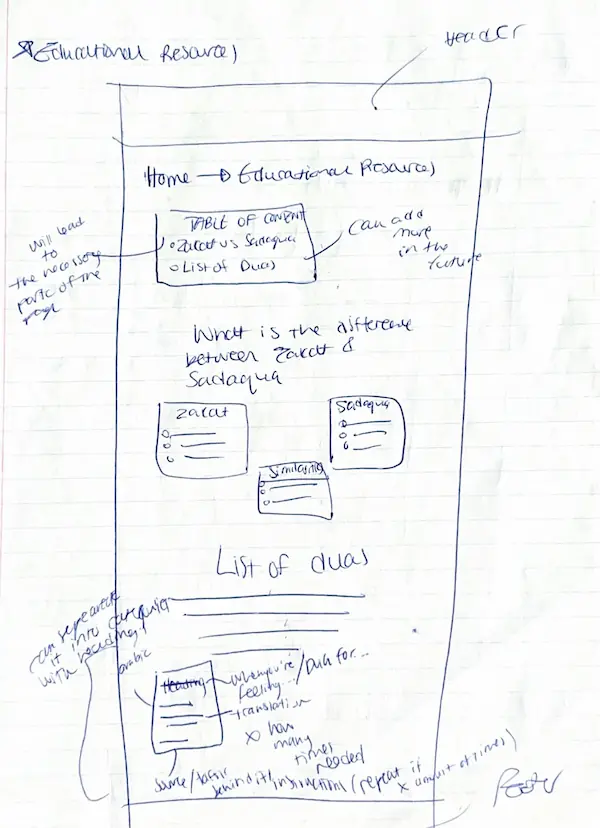 Educational Resource)
Header
Home → Educational Resource)
TABLE OF CONTENT
• Zakat vs Sadaqua
• List of Duas
Will lead
to
the necessary
parts of the
page
Can add
more
in the
future
What is the difference
between Zakat &
Sadaqua
Zakat
Sadaqua
Similarities
List of duas
can separate
it into categories
with heading!
arabic
Heading
When you're
feeling... / Dua for...
translation
x how
many
times
needed
instructions (repeat it
x amount of times)
Footer